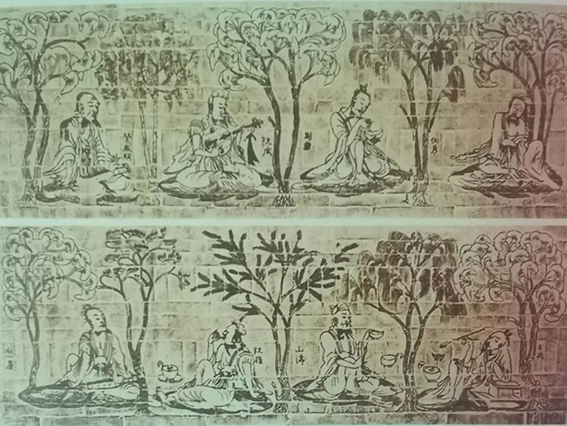 榮啟期
阮咸
劉靈
向秀
嵇康
阮籍
山濤